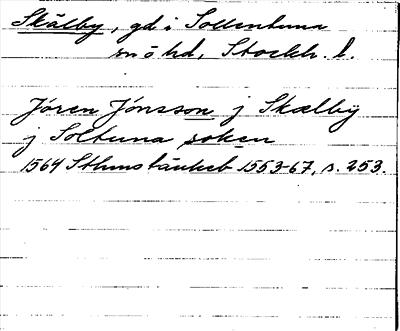 Skälby, gd i Sollentuna
sn o hd, Stockh. l.
Jören Jónsson j Skælby
j Soltuna soken
1564 Sthms tänkeb 1553-67, s. 253.